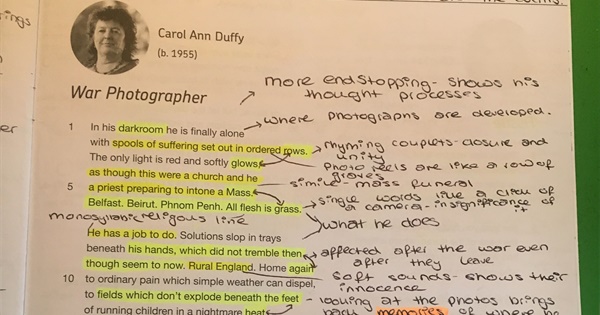 Carol Ann Duffy
(b. 1955)
more endstopping - shows his
thought processes
War Photographer
where photographs are developed.
1 In his darkroom he is finally alone
with spools of suffering set out in ordered rows.
rhyming couplets - closure and
unity
The only light is red and softly glows,
photo reels are like a row of
graves
as though this were a church and he
simile - mass funeral
5 a priest preparing to intone a Mass.
Belfast. Beirut. Phnom Penh. All flesh is grass.
single words like a click of
a camera - insignificance of
it
monosyllabic religous line
what he does
He has a job to do. Solutions slop in trays
beneath his hands, which did not tremble then
affected after the war even
after they leave
though seem to now. Rural England. Home again
soft sounds - shows their
innocence
10 to ordinary pain which simple weather can dispel,
to fields which don't explode beneath the feet
looking at the photos brings
of running children in a nightmare heat.
back memories of where he